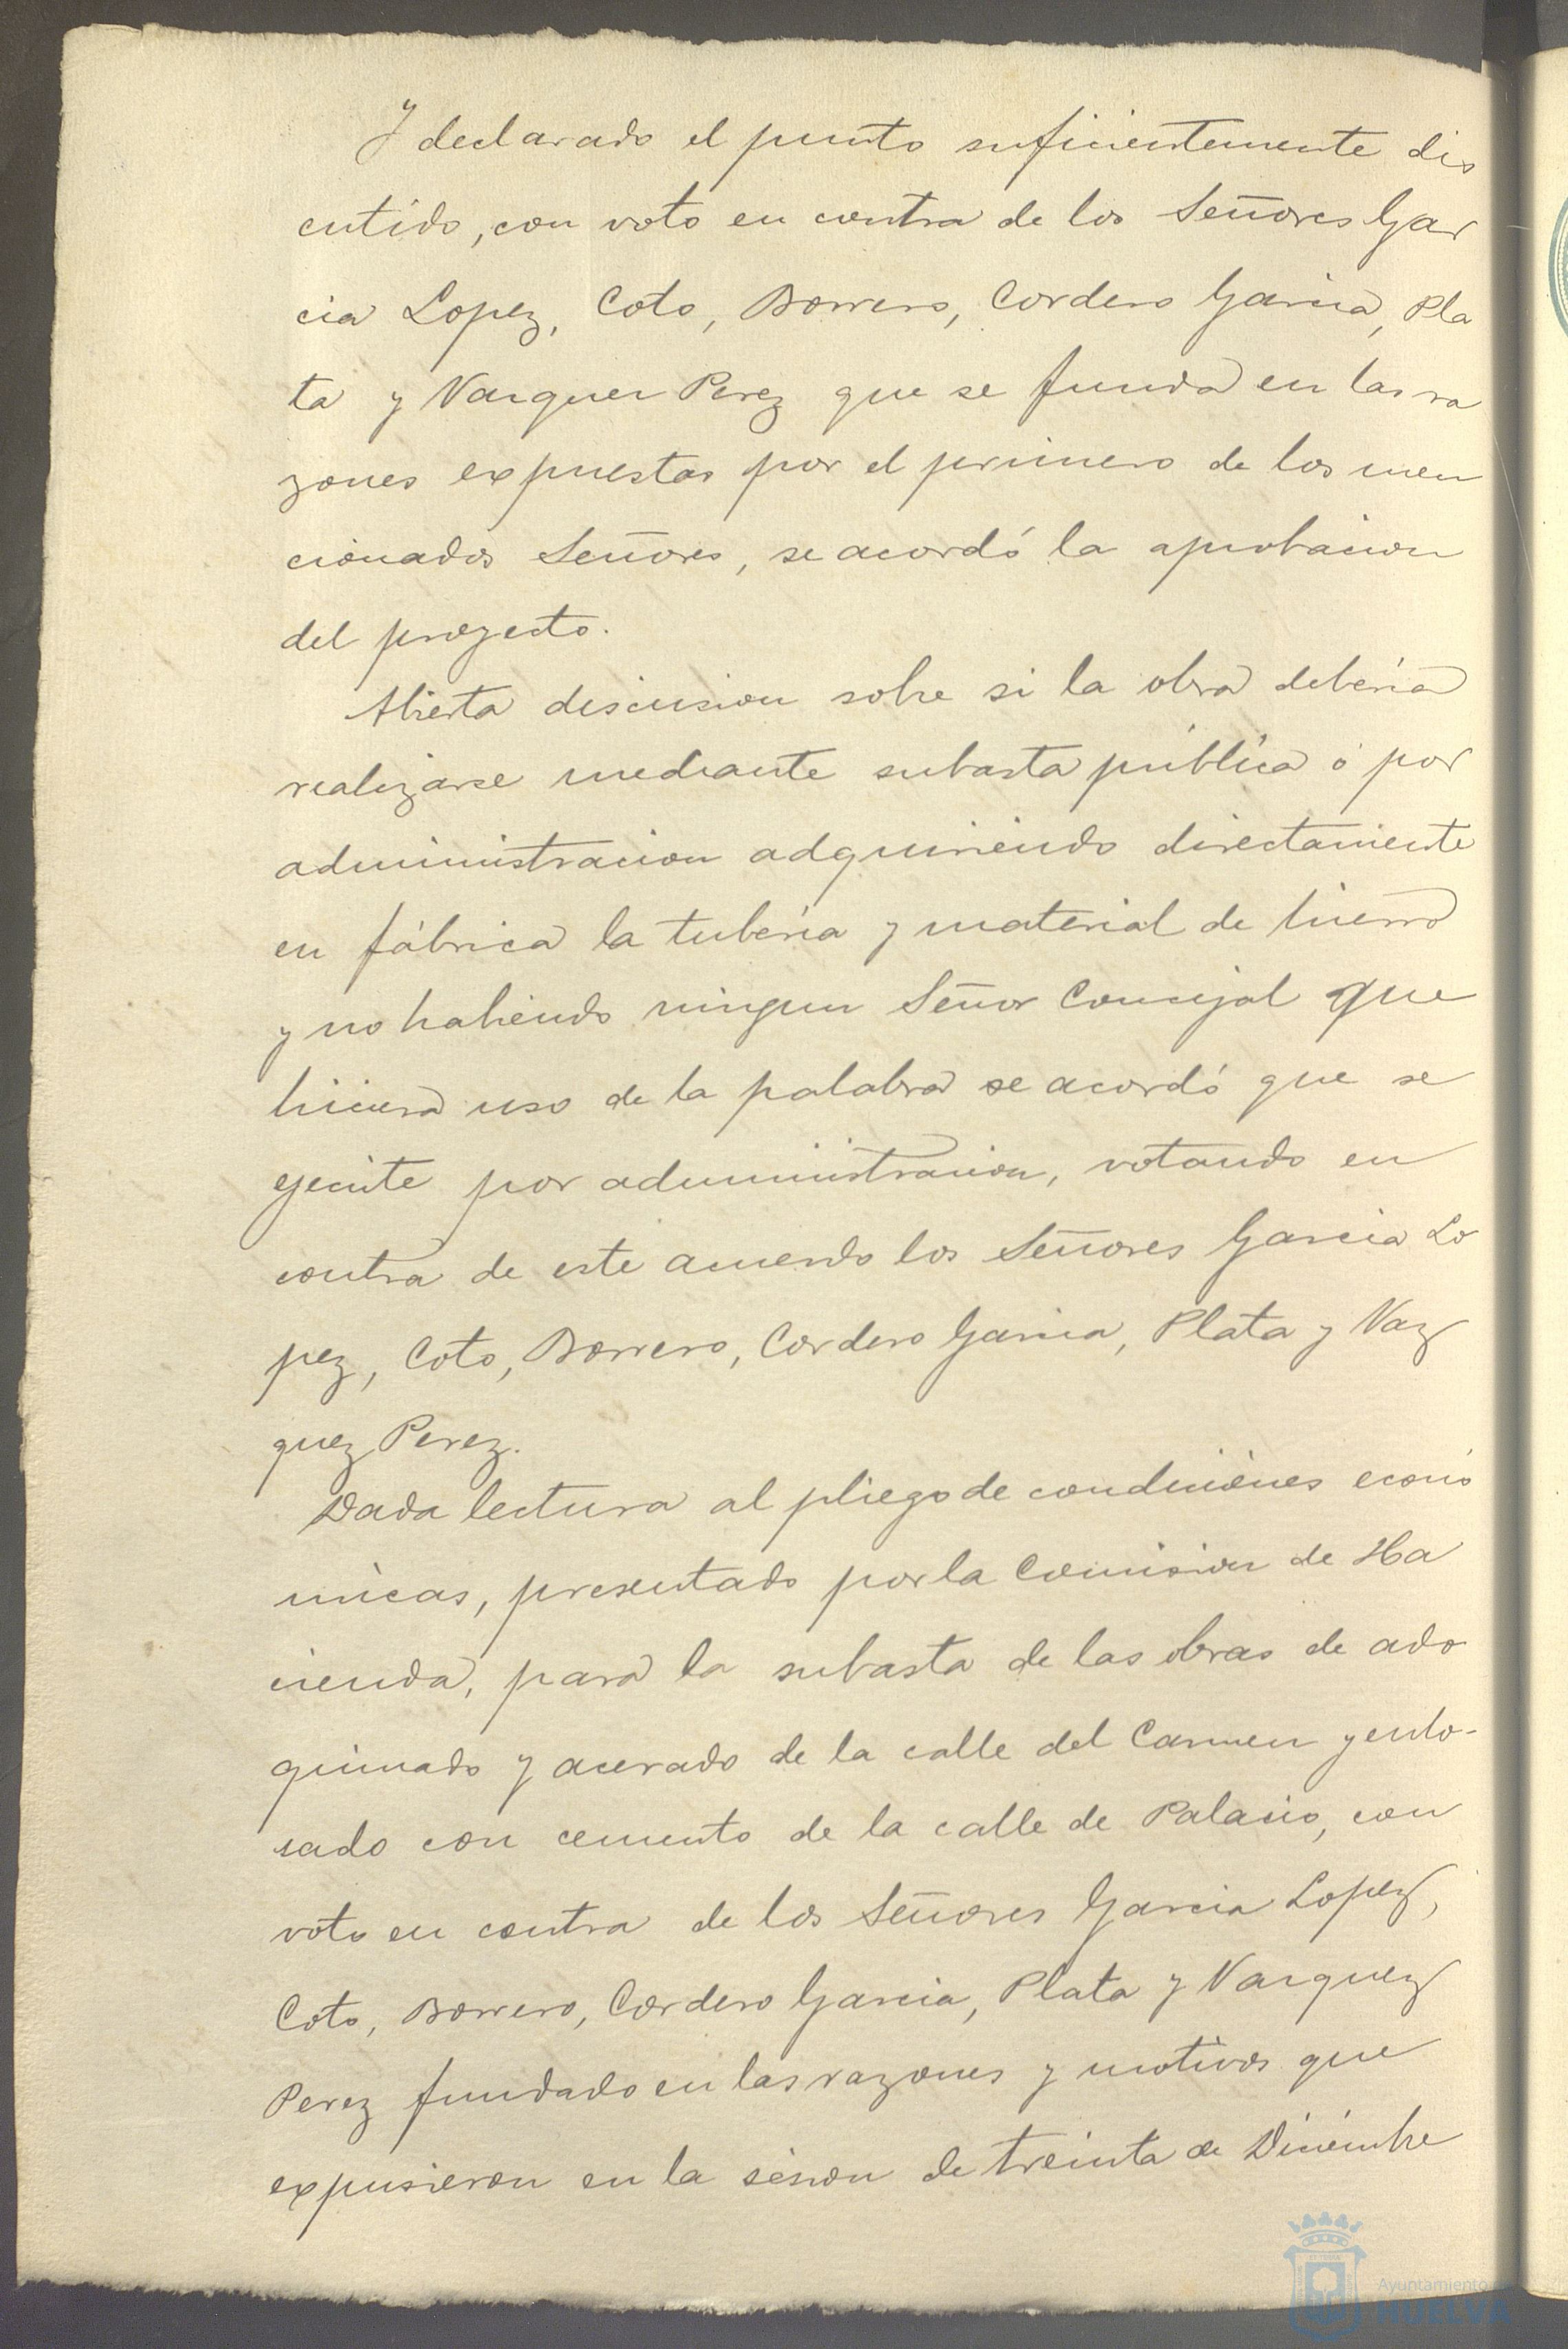 Y declarado el punto suficientemente dis
cutido, con voto en contra de los Señores Gar
cia Lopez, Coto, Borrero, Cordero Garcia, Pla
ta y Vazquez Perez que se funda en las ra
zones expuestas por el primero de los men
cionados Señores, se acordó la aprobacion
del proyecto.
Abierta discusion sobre si la obra debería
realizarse mediante subasta pública ó por
administracion adquiriendo directamente
en fábrica la tubería y material de hierro
y no habiendo ningun Señor Concejal que
hiciera uso de la palabra se acordó que se
ejecute por administracion, votando en
contra de este acuerdo los Señores Garcia Lo
pez, Coto, Borrero, Cordero Garcia, Plata y Vaz
quez Perez.
Dada lectura al pliego de condiciones econó
micas, presentado por la Comision de Ha
cienda, para la subasta de las obras de ado
quinado y acerado de la calle del Carmen y enlo-
sado con cemento de la calle de Palacio, con
voto en contra de los Señores Garcia Lopez,
Coto, Borrero, Cordero Garcia, Plata y Vazquez
Perez fundado en las razones y motivos que
expusieron en la sesion de treinta de Diciembre
Ayuntamiento
HUELVA